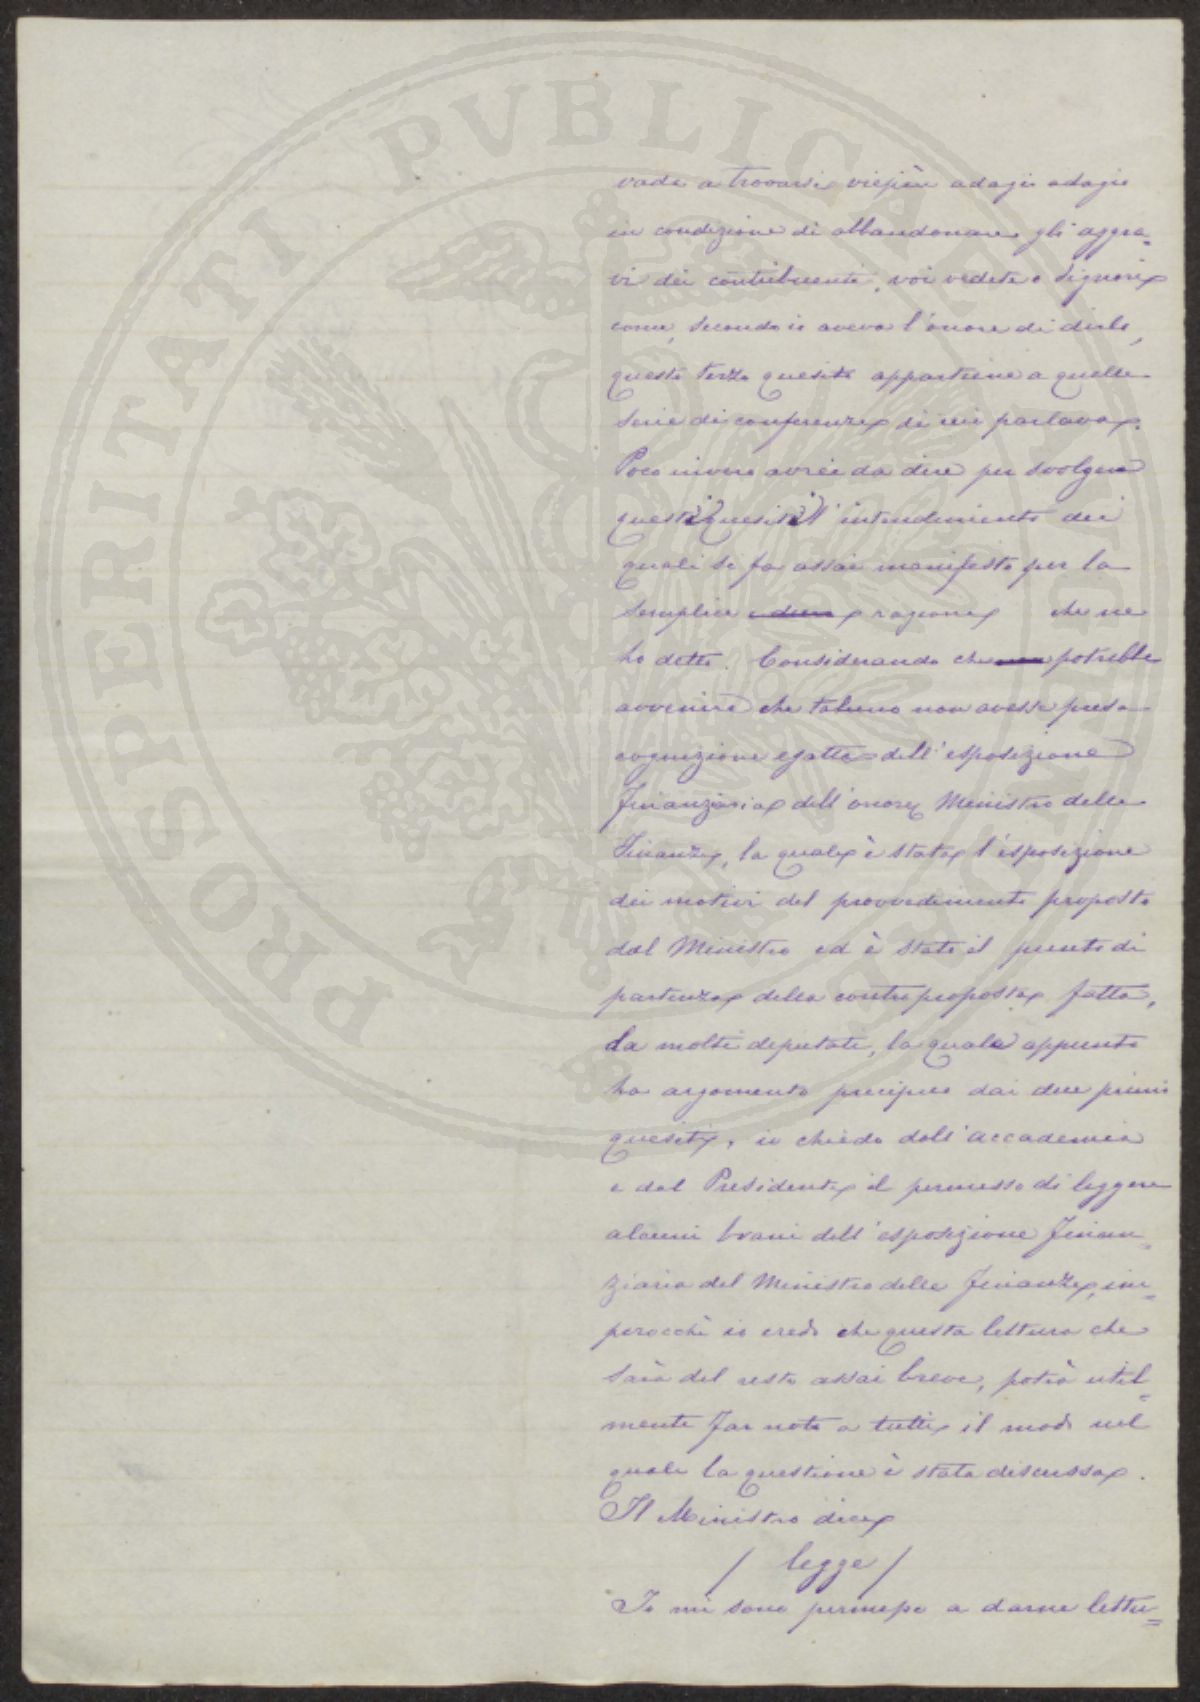 vada a trovarsi viepiù adagio adagio
in condizione di abbandonare gli aggra=
vi dei contribuenti, voi vedete o Signori
come, secondo io aveva l'onore di dirlo,
questo terzo quesito appartiene a quelle
serie di conferenze di cui parlava.
Poco invero avrei da dire per svolgere
questi quesiti l'intendimento dei
quali si fa assai manifesto per la
semplice ragione che ne
ho detto. Considerando che potrebbe
avvenire che taluno non avesse presa
cognizione esatta dell'esposizione
finanziaria dell'onore Ministro delle
Finanze, la quale è stata l'esposizione
dei motivi del provvedimento proposto
dal Ministro ed è stato il punto di
partenza della contro proposta fatta,
da molti deputati, la quale appunto
ha argomento precipuo dai due primi
quesiti, io chiedo dall'accademia
e dal Presidente il permesso di leggere
alcuni brani dell'esposizione finan=
ziaria del Ministro delle Finanze, im=
perocchè io credo che questa lettura che
sarà del resto assai breve, potrà util=
mente far noto a tutti il modo nel
quale la questione è stata discussa.
Il Ministro dice
/ legge /
Io mi sono permesso a darne lettu=
PROSPERITATI PVBLICAE